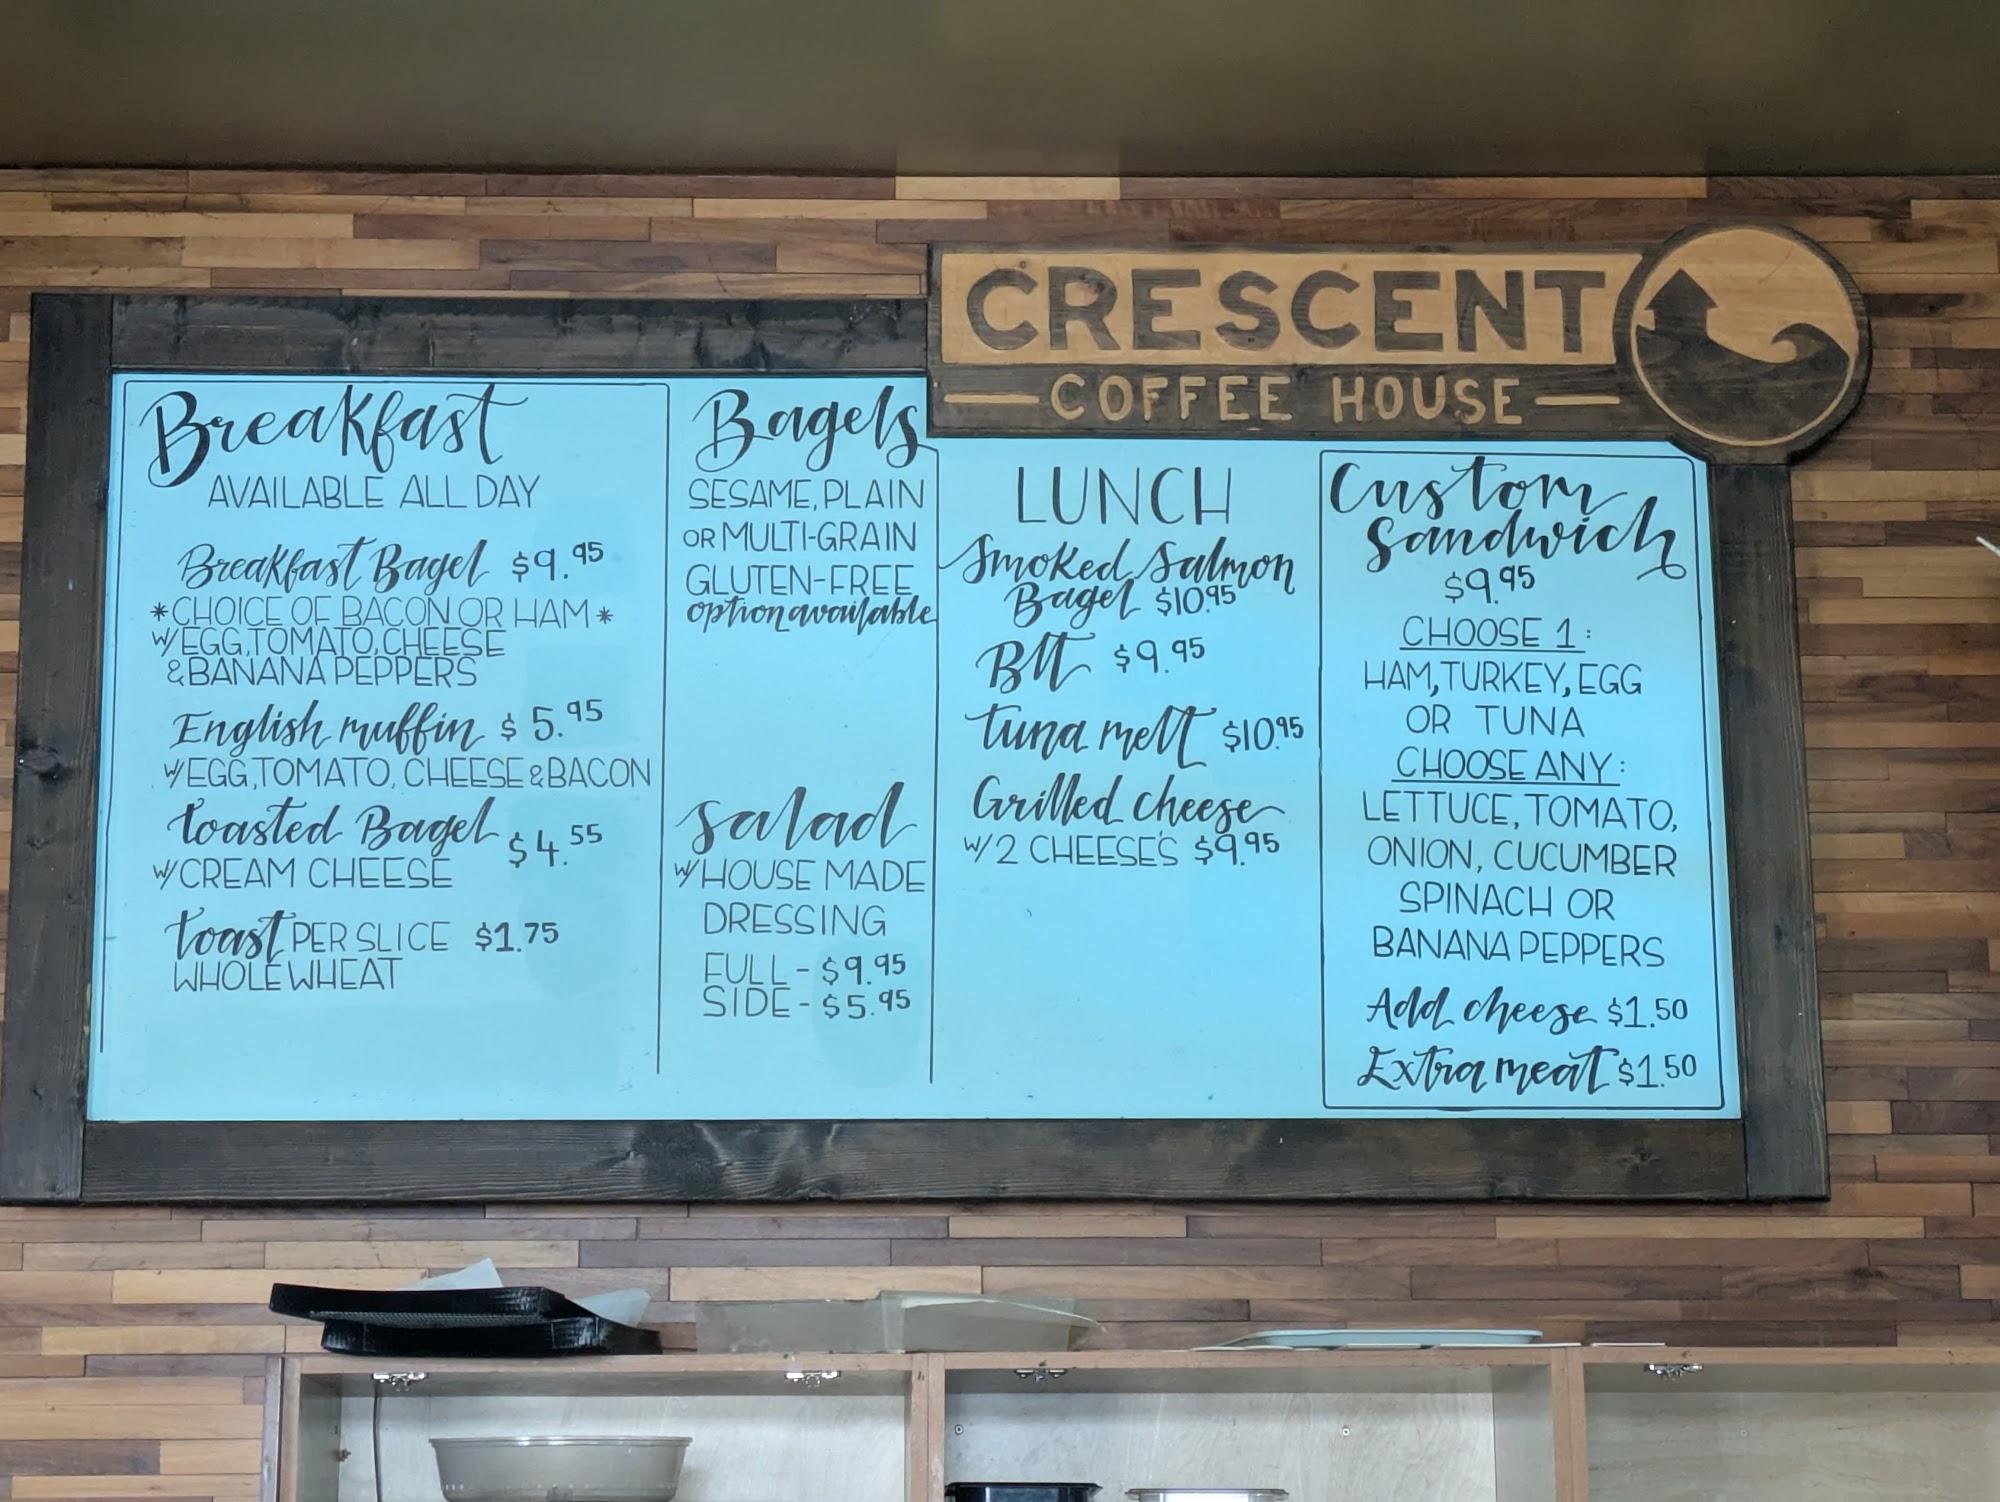 CRESCENT
COFFEE HOUSE
Breakfast
AVAILABLE ALL DAY
Breakfast Bagel $9.95
*CHOICE OF BACON OR HAM*
W/ EGG, TOMATO, CHEESE
& BANANA PEPPERS
English muffin $5.95
W/ EGG, TOMATO, CHEESE & BACON
toasted Bagel $4.55
W/ CREAM CHEESE
toast PER SLICE $1.75
WHOLE WHEAT
Bagels
SESAME, PLAIN
OR MULTI-GRAIN
GLUTEN-FREE
option available
salad
W/ HOUSE MADE
DRESSING
FULL - $9.95
SIDE - $5.95
LUNCH
Smoked Salmon
Bagel $10.95
Blt $9.95
tuna melt $10.95
Grilled cheese
W/ 2 CHEESE'S $9.95
Custom
Sandwich
$9.95
CHOOSE 1:
HAM, TURKEY, EGG
OR TUNA
CHOOSE ANY:
LETTUCE, TOMATO,
ONION, CUCUMBER
SPINACH OR
BANANA PEPPERS
Add cheese $1.50
Extra meat $1.50